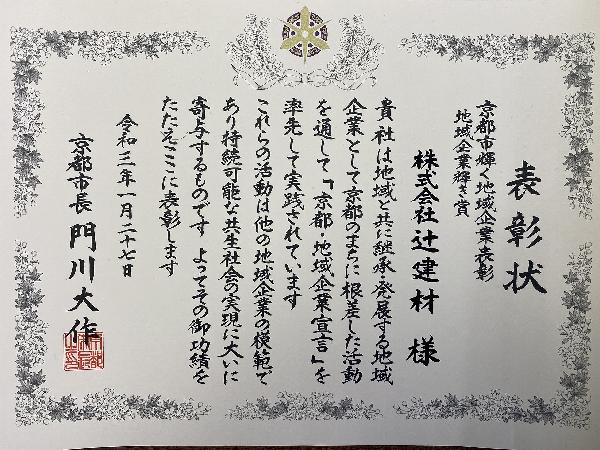 表彰状
京都市輝く地域企業表彰
地域企業輝き賞
株式会社 辻建材 様
貴社は地域と共に継承・発展する地域
企業として京都のまちに根差した活動
を通して「京都・地域企業宣言」を
率先して実践されています
これらの活動は他の地域企業の模範で
あり持続可能な共生社会の実現に大いに
寄与するものです よってその御功績を
たたえここに表彰します
令和三年一月二十七日
京都市長 門川大作